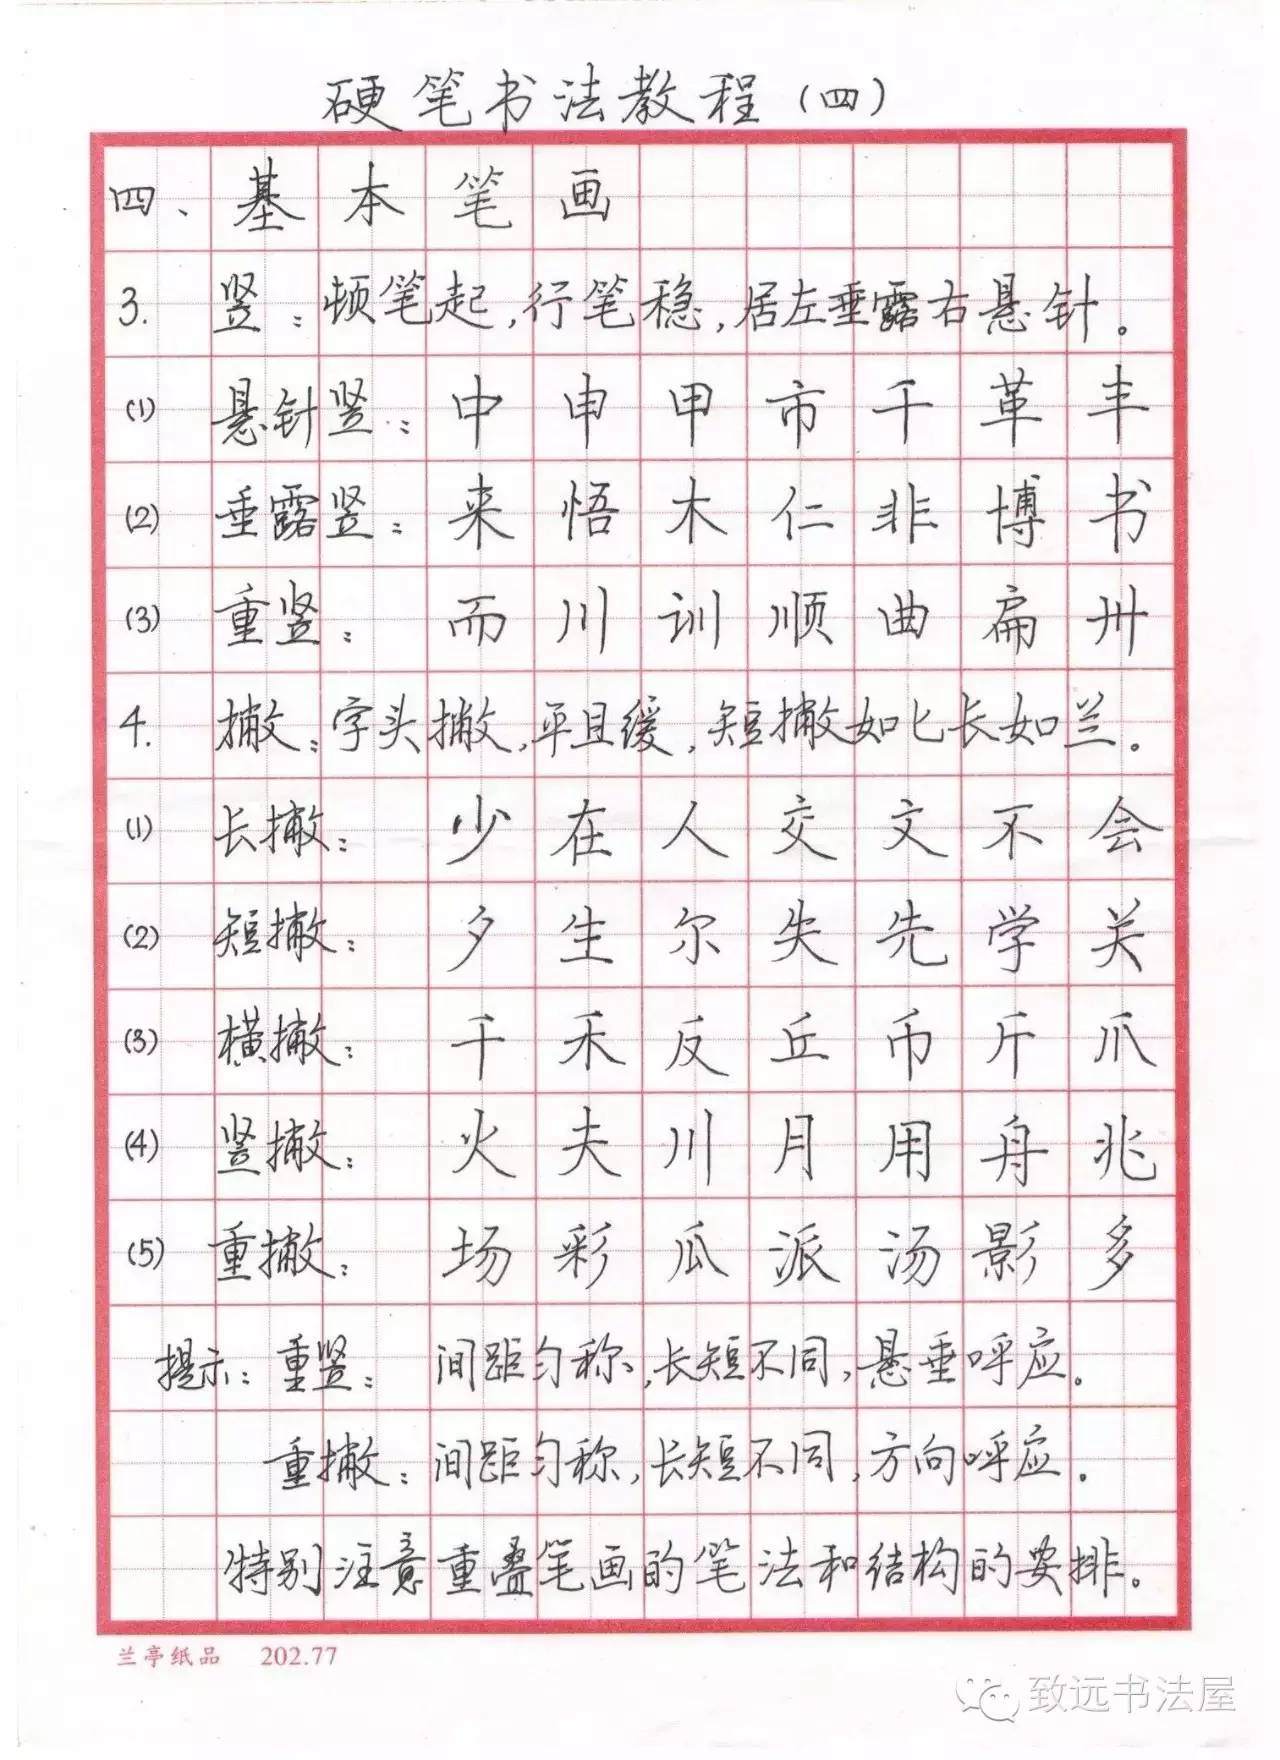 硬笔书法教程（四）
四、基本笔画
3. 竖：顿笔起，行笔稳，居左垂露右悬针。
(1) 悬针竖：中申甲市千革丰
(2) 垂露竖：来悟木仁非博书
(3) 重竖：而川训顺曲扁卅
4. 撇：字头撇，平且缓，短撇如匕长如兰。
(1) 长撇：少在人交文不会
(2) 短撇：夕生尔失先学关
(3) 横撇：千禾反丘币斤爪
(4) 竖撇：火夫川月用舟兆
(5) 重撇：场彩瓜派汤影多
提示：重竖：间距匀称，长短不同，悬垂呼应。
重撇：间距匀称，长短不同，方向呼应。
特别注意重叠笔画的笔法和结构的安排。
兰亭纸品 202.77
致远书法屋